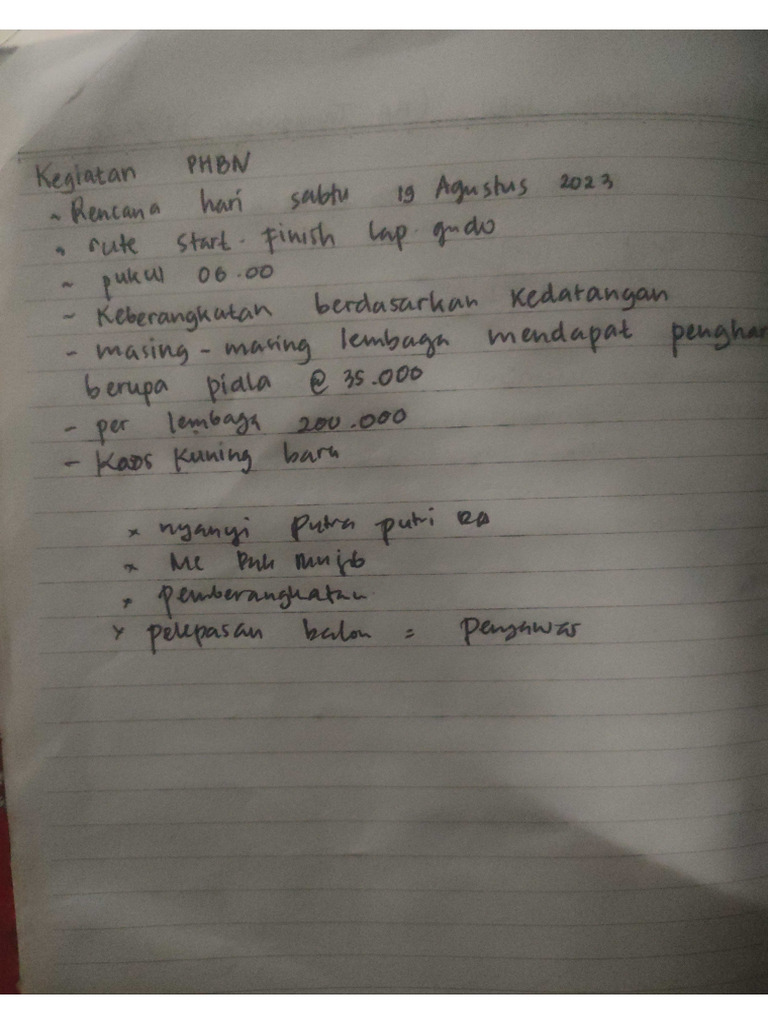 Kegiatan PHBN
~ Rencana hari sabtu 19 Agustus 2023
~ rute start - Finish Lap. gudo
~ pukul 06.00
~ Keberangkatan berdasarkan Kedatangan
- masing - masing lembaga mendapat penghar
berupa piala @ 35.000
- per lembaga 200.000
- Kaos Kuning baru
x nyanyi putra putri RA
x MC Pak Mujib
x pemberangkatan
x pelepasan balon = Pengawas